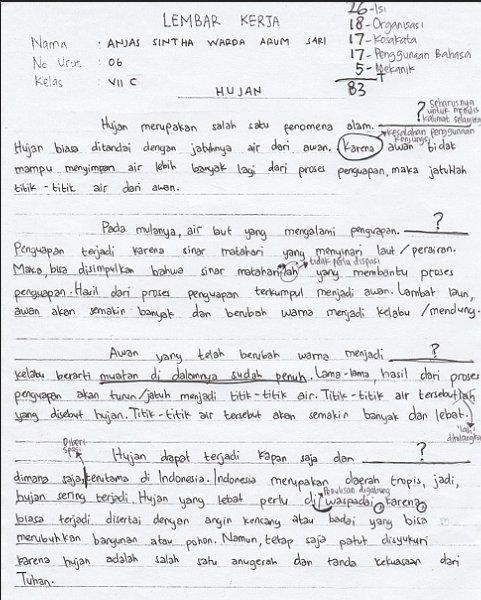 LEMBAR KERJA
26 - Isi
18 - Organisasi
17 - Kosakata
17 - Penggunaan Bahasa
5 - Mekanik
83
Nama : ANJAS SINTHA WARDA ARUM SARI
No Urut : 06
Kelas : VII C
HUJAN
? seharusnya
untuk menulis
kalimat selanjutnya
Hujan merupakan salah satu penomena alam.
kesalahan penggunaan
konjungsi
Hujan biasa ditandai dengan jatuhnya air dari awan. Karena awan tidak
mampu menyimpan air lebih banyak lagi dari proses penguapan, maka jatuhlah
titik-titik air dari awan.
Pada mulanya, air laut yang mengalami penguapan. ?
Penguapan terjadi karena sinar matahari yang menyinari laut / perairan.
tidak perlu dispasi
Maka bisa disimpulkan bahwa sinar matahari lah yang membantu proses
penguapan. Hasil dari proses penguapan terkumpul menjadi awan. Lambat laun,
awan akan semakin banyak dan berubah warna menjadi kelabu / mendung.
Awan yang telah berubah warna menjadi ?
kelabu berarti muatan di dalamnya sudah penuh. Lama-lama, hasil dari proses
penguapan akan turun / jatuh menjadi titik-titik air. Titik-titik air tersebutlah
yang disebut hujan. Titik-titik air tersebut akan semakin banyak dan lebat.
"lah"
dihilangkan
Diberi
spasi
Hujan dapat terjadi kapan saja dan ?
dimana saja,terutama di Indonesia. Indonesia merupakan daerah tropis, jadi,
Penulisan digabung
hujan sering terjadi. Hujan yang lebat perlu di waspadai, karena,
biasa terjadi disertai dengan angin kencang atau badai yang bisa
merubuhkan bangunan atau pohon. Namun, tetap saja patut disyukuri
karena hujan adalah salah satu anugerah dan tanda kekuasaan dari
Tuhan.